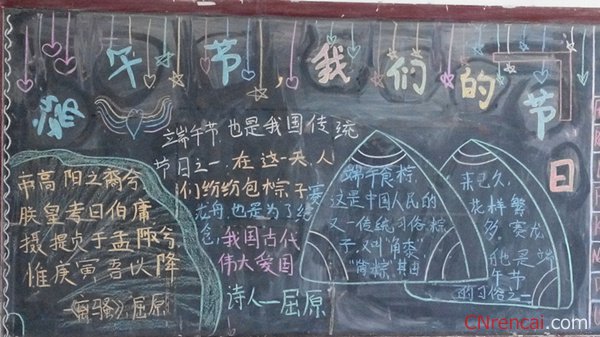 端午节,我们的节日
帝高阳之裔兮
朕皇考曰伯庸
摄提贞于孟陬兮
惟庚寅吾以降
—《离骚》屈原
端午节,也是我国传统
节日之一,在这一天,人
们纷纷包棕子赛
龙舟,也是为了纪
念,我国古代
伟大爱国
诗人—屈原
端午食棕,
这是中国人民的
又一传统习俗,棕
子,又叫“角黍”
“筒棕”其由
来已久,
花样繁
多.赛龙
也是端
午节
的习俗之一
CNrencai.com